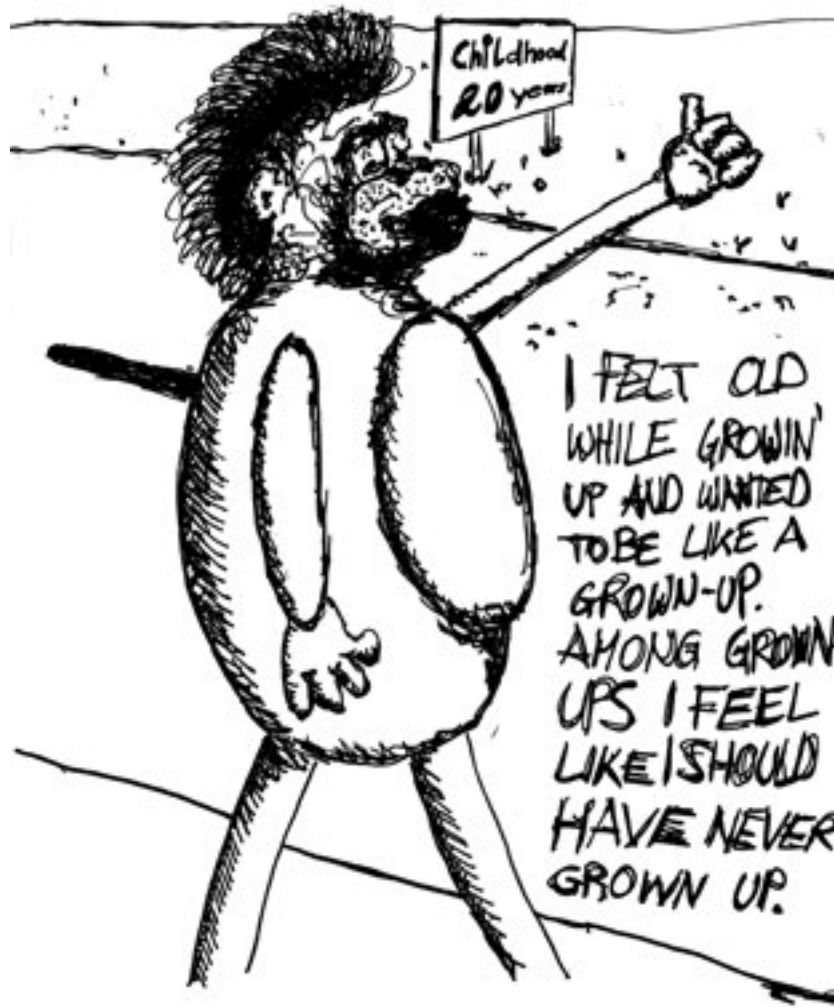 Childhood
20 years
I FELT OLD
WHILE GROWIN'
UP AND WANTED
TO BE LIKE A
GROWN-UP.
AMONG GROWN
UPS I FEEL
LIKE I SHOULD
HAVE NEVER
GROWN UP.